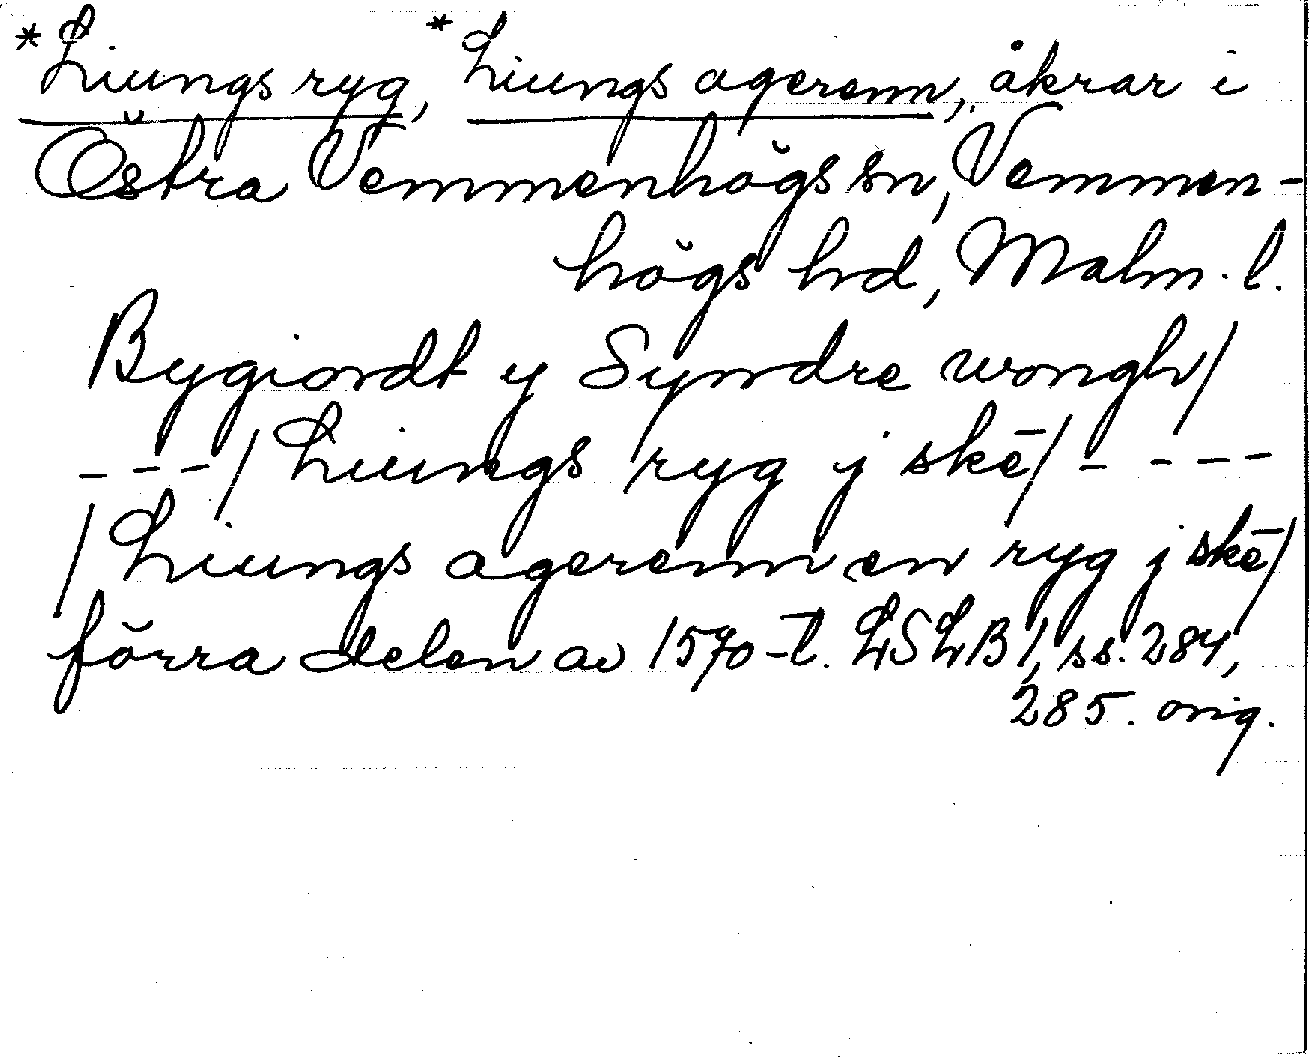 *Liungs ryg, *Liungs agerenn, åkrar i
Östra Vemmenhögs sn, Vemmen-
högs hd, Malm. l.
Bygiordt y Syndre wongh/
---/ Liungs ryg j skē/ ----
/Liungs agerenn en ryg j skē/
förra delen av 1570-t. LSLB 1, ss. 284,
285. orig.